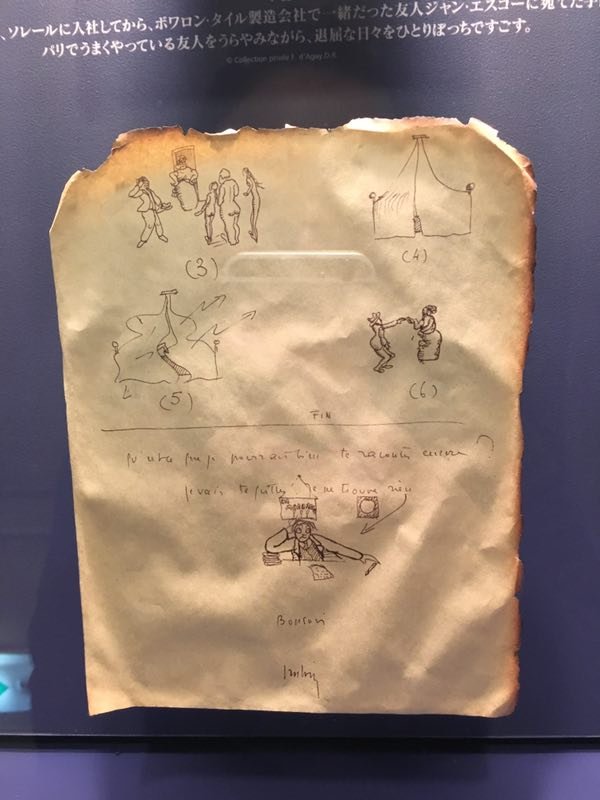 、ソレールに入社してから、ボワロン・タイル製造会社で一緒だった友人ジャン・エスコーに宛てた手
パリでうまくやっている友人をうらやみながら、退屈な日々をひとりぼっちですごす。
© Collection privée F. d'Agay.D.R.
(3)
(4)
(5)
(6)
FIN
pourrais bien te raconter encore ?
je vais te quitter je ne trouve rien
Bonsoir